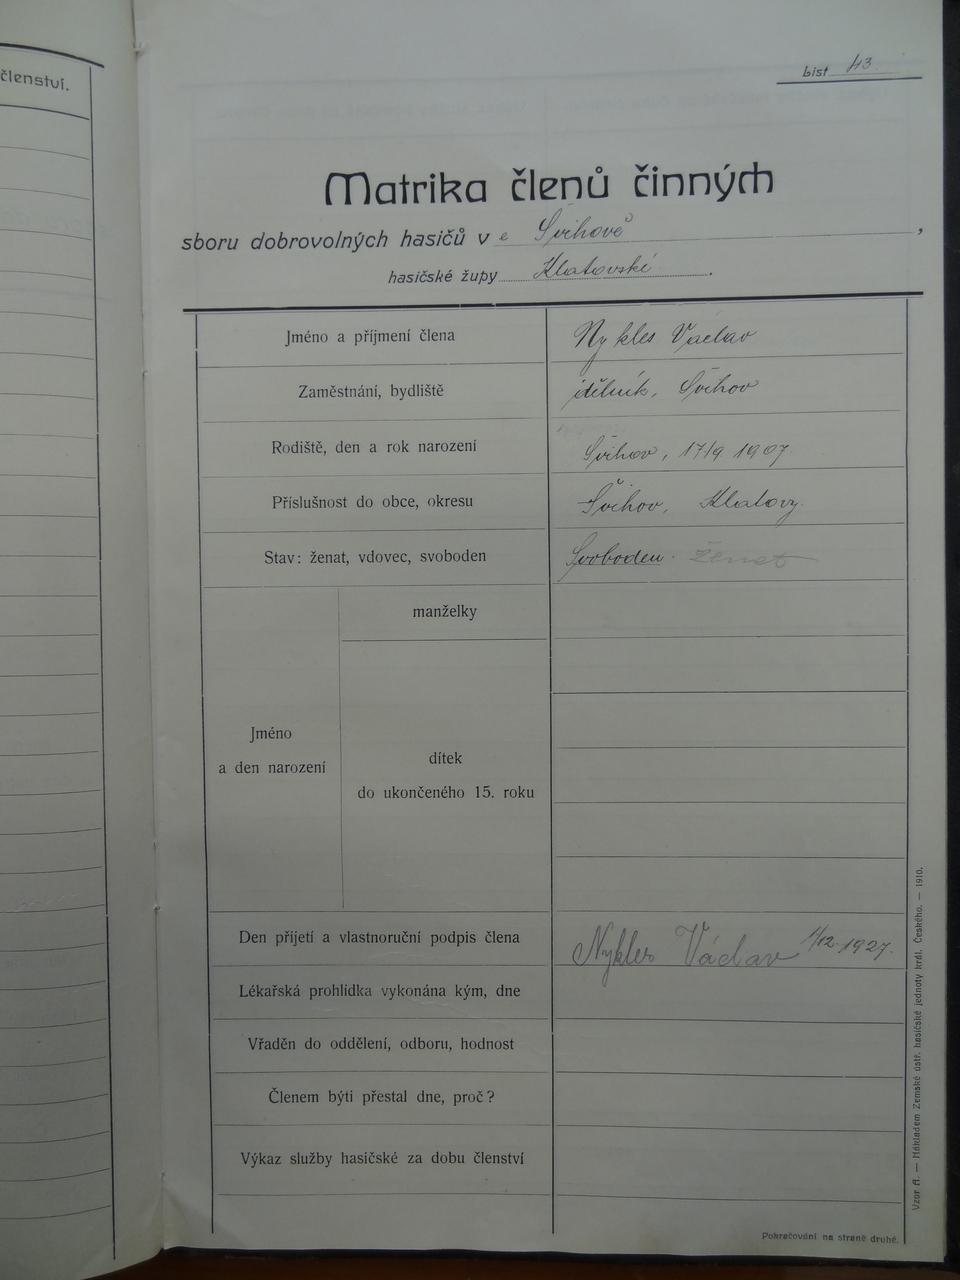 členství.
List 43
Matrika členů činných
sboru dobrovolných hasičů v e Švihově,
hasičské župy Klatovské.
Jméno a příjmení člena Nykles Václav
Zaměstnání, bydliště dělník, Švihov
Rodiště, den a rok narození Švihov, 17/9 1907.
Příslušnost do obce, okresu Švihov, Klatovy.
Stav: ženat, vdovec, svoboden Svoboden. ženat
manželky
Jméno
a den narození
dítek
do ukončeného 15. roku
Den přijetí a vlastnoruční podpis člena Nykles Václav 1/12 1927.
Lékařská prohlídka vykonána kým, dne
Vřaděn do oddělení, odboru, hodnost
Členem býti přestal dne, proč?
Výkaz služby hasičské za dobu členství
Pokračování na straně druhé.
Vzor A. — Nákladem Zemské ústř. hasičské jednoty král. Českého. — 1910.